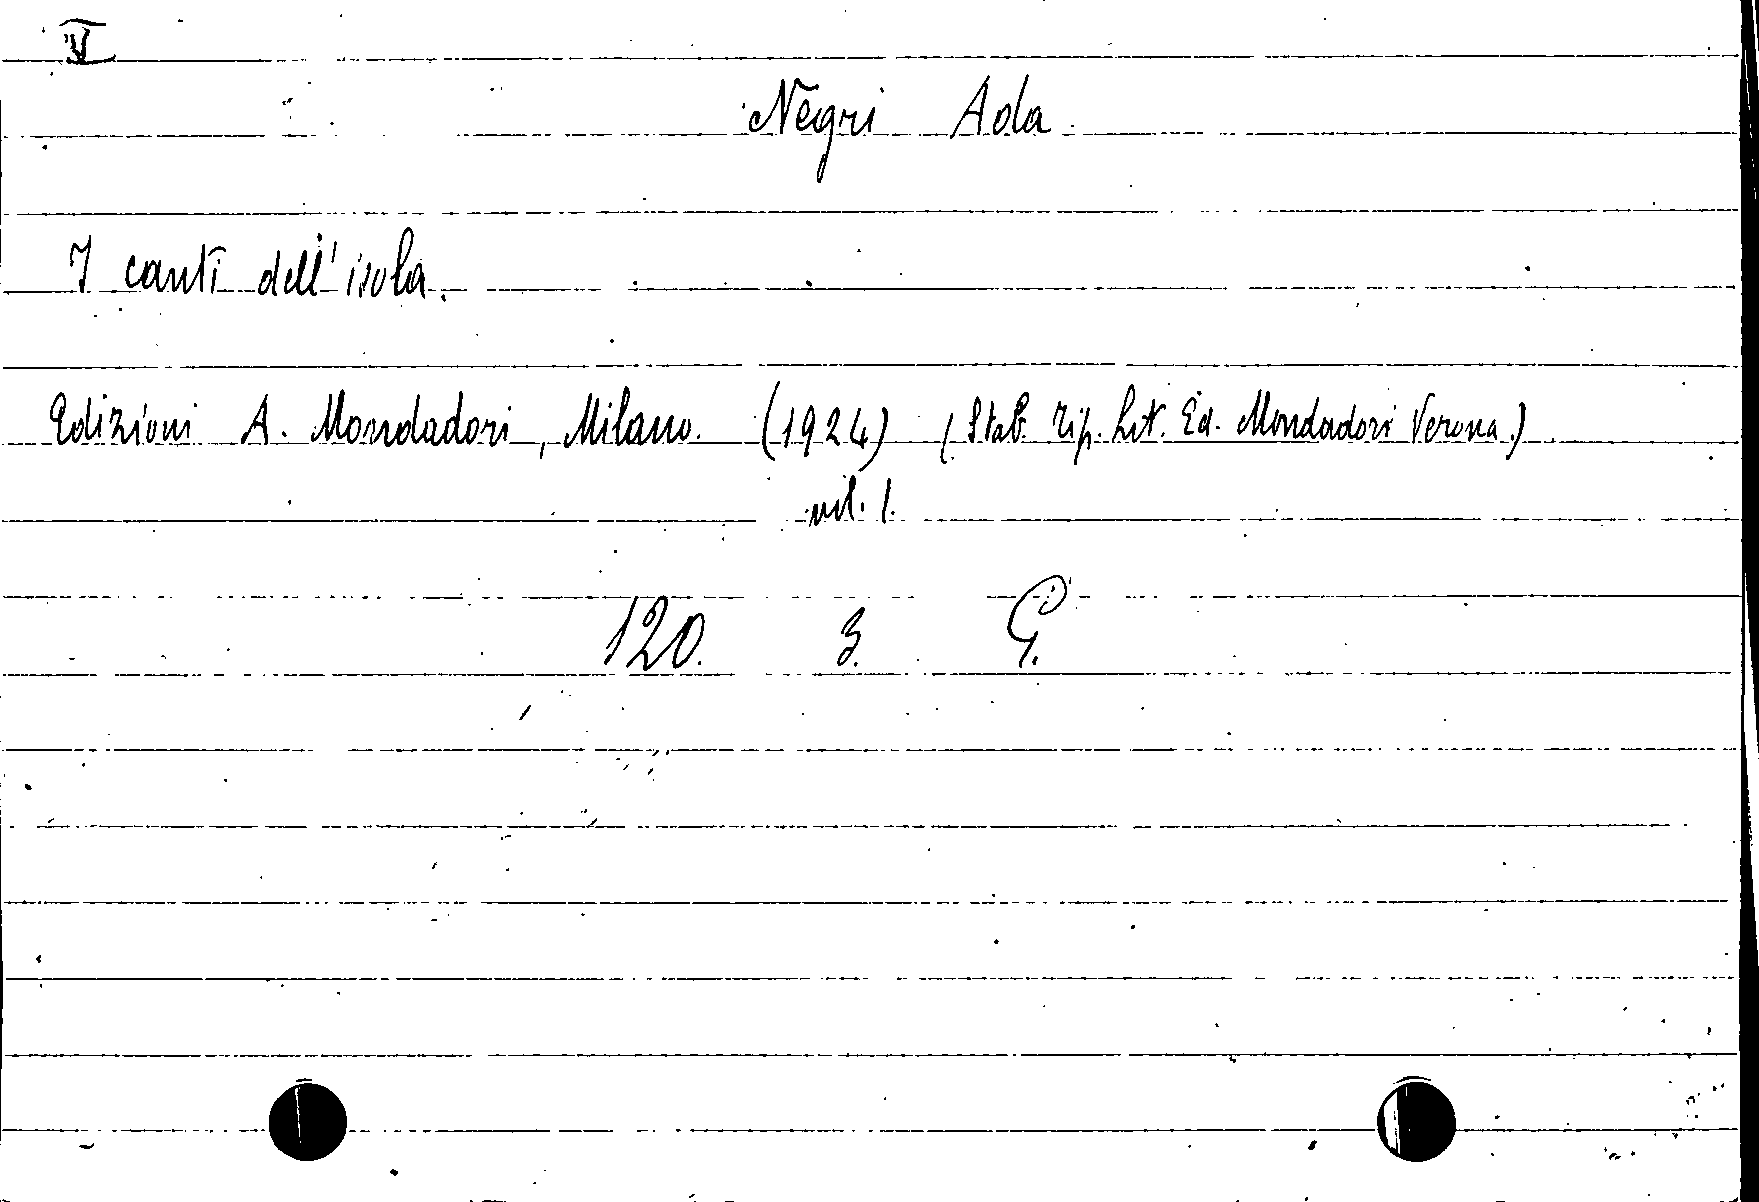 V
Negri Ada
I canti dell'isola.
Edizioni A. Mondadori, Milano. (1924) (Stab. Tip. Lit. Ed. Mondadori Verona.)
vol. 1.
120. 3. G.